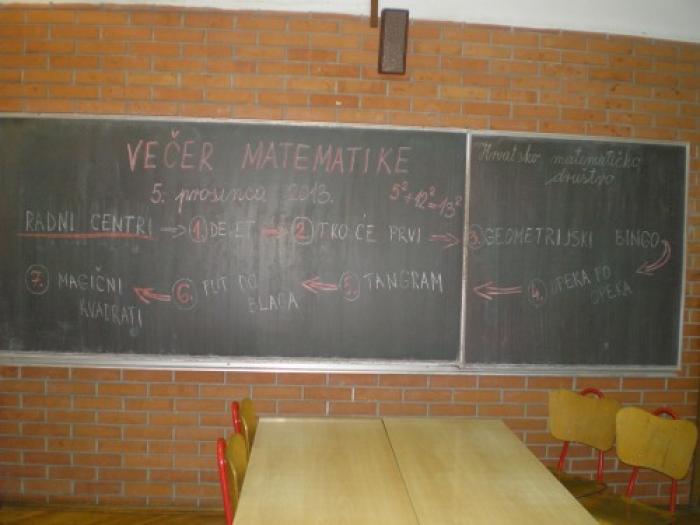 VEČER MATEMATIKE
5. prosinca 2013.
5²+12²=13²
Hrvatsko matematičko
društvo
RADNI CENTRI → 1. DEVET → 2. TKO ĆE PRVI → 3. GEOMETRIJSKI BINGO
4. OPEKA PO
OPEKA
5. TANGRAM
6. PUT DO
BLAGA
7. MAGIČNI
KVADRATI